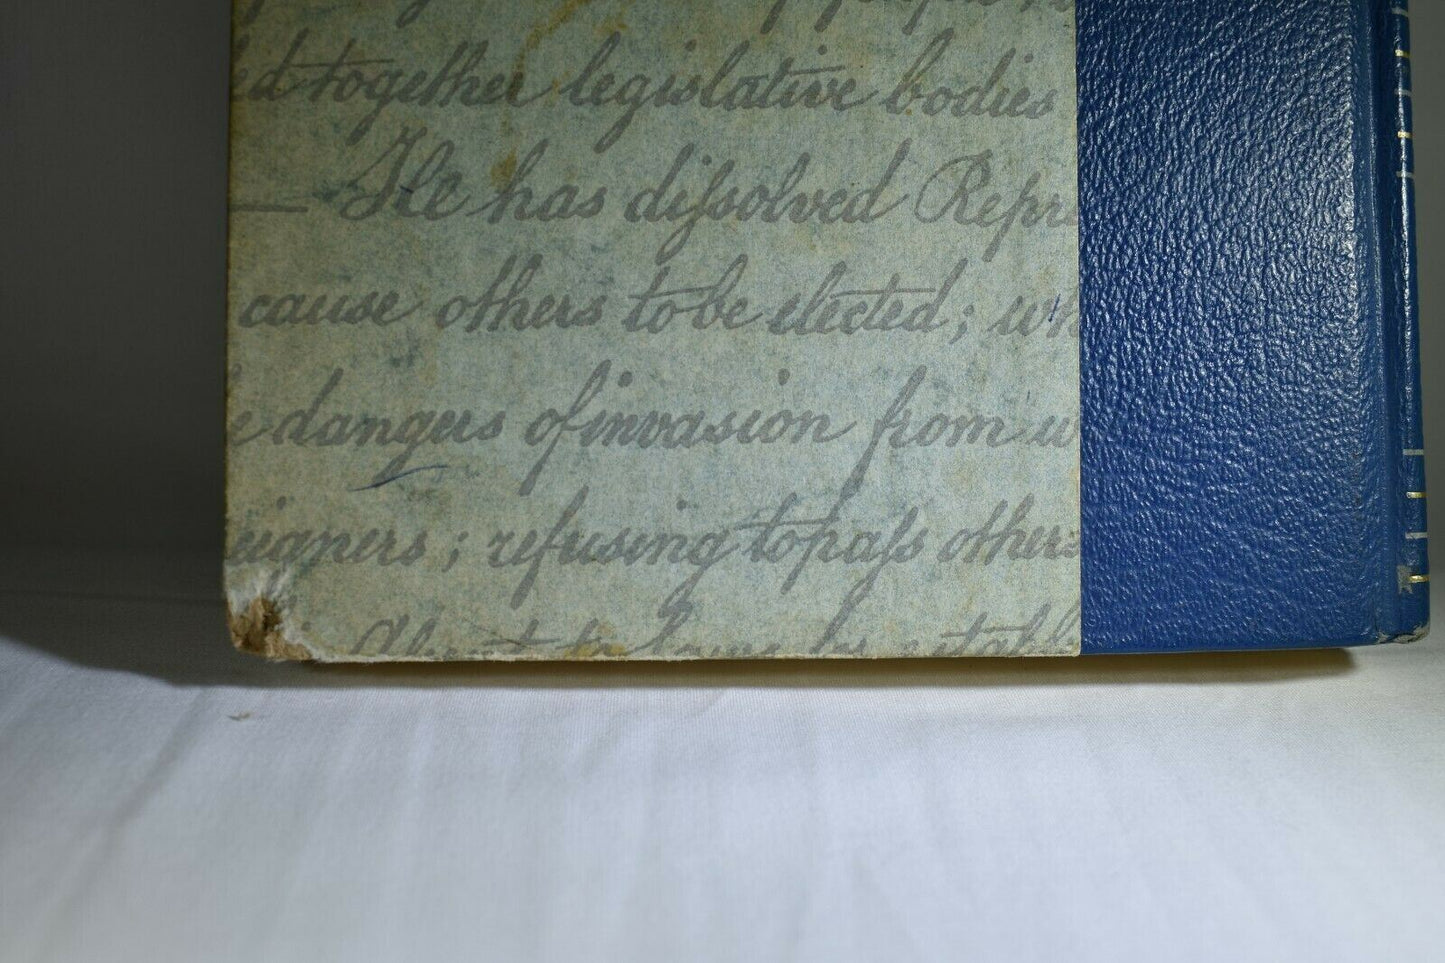 d together legislative bodies
— He has dissolved Repre
cause others to be elected; wh
e dangers of invasion from w
eigners; refusing to pass others